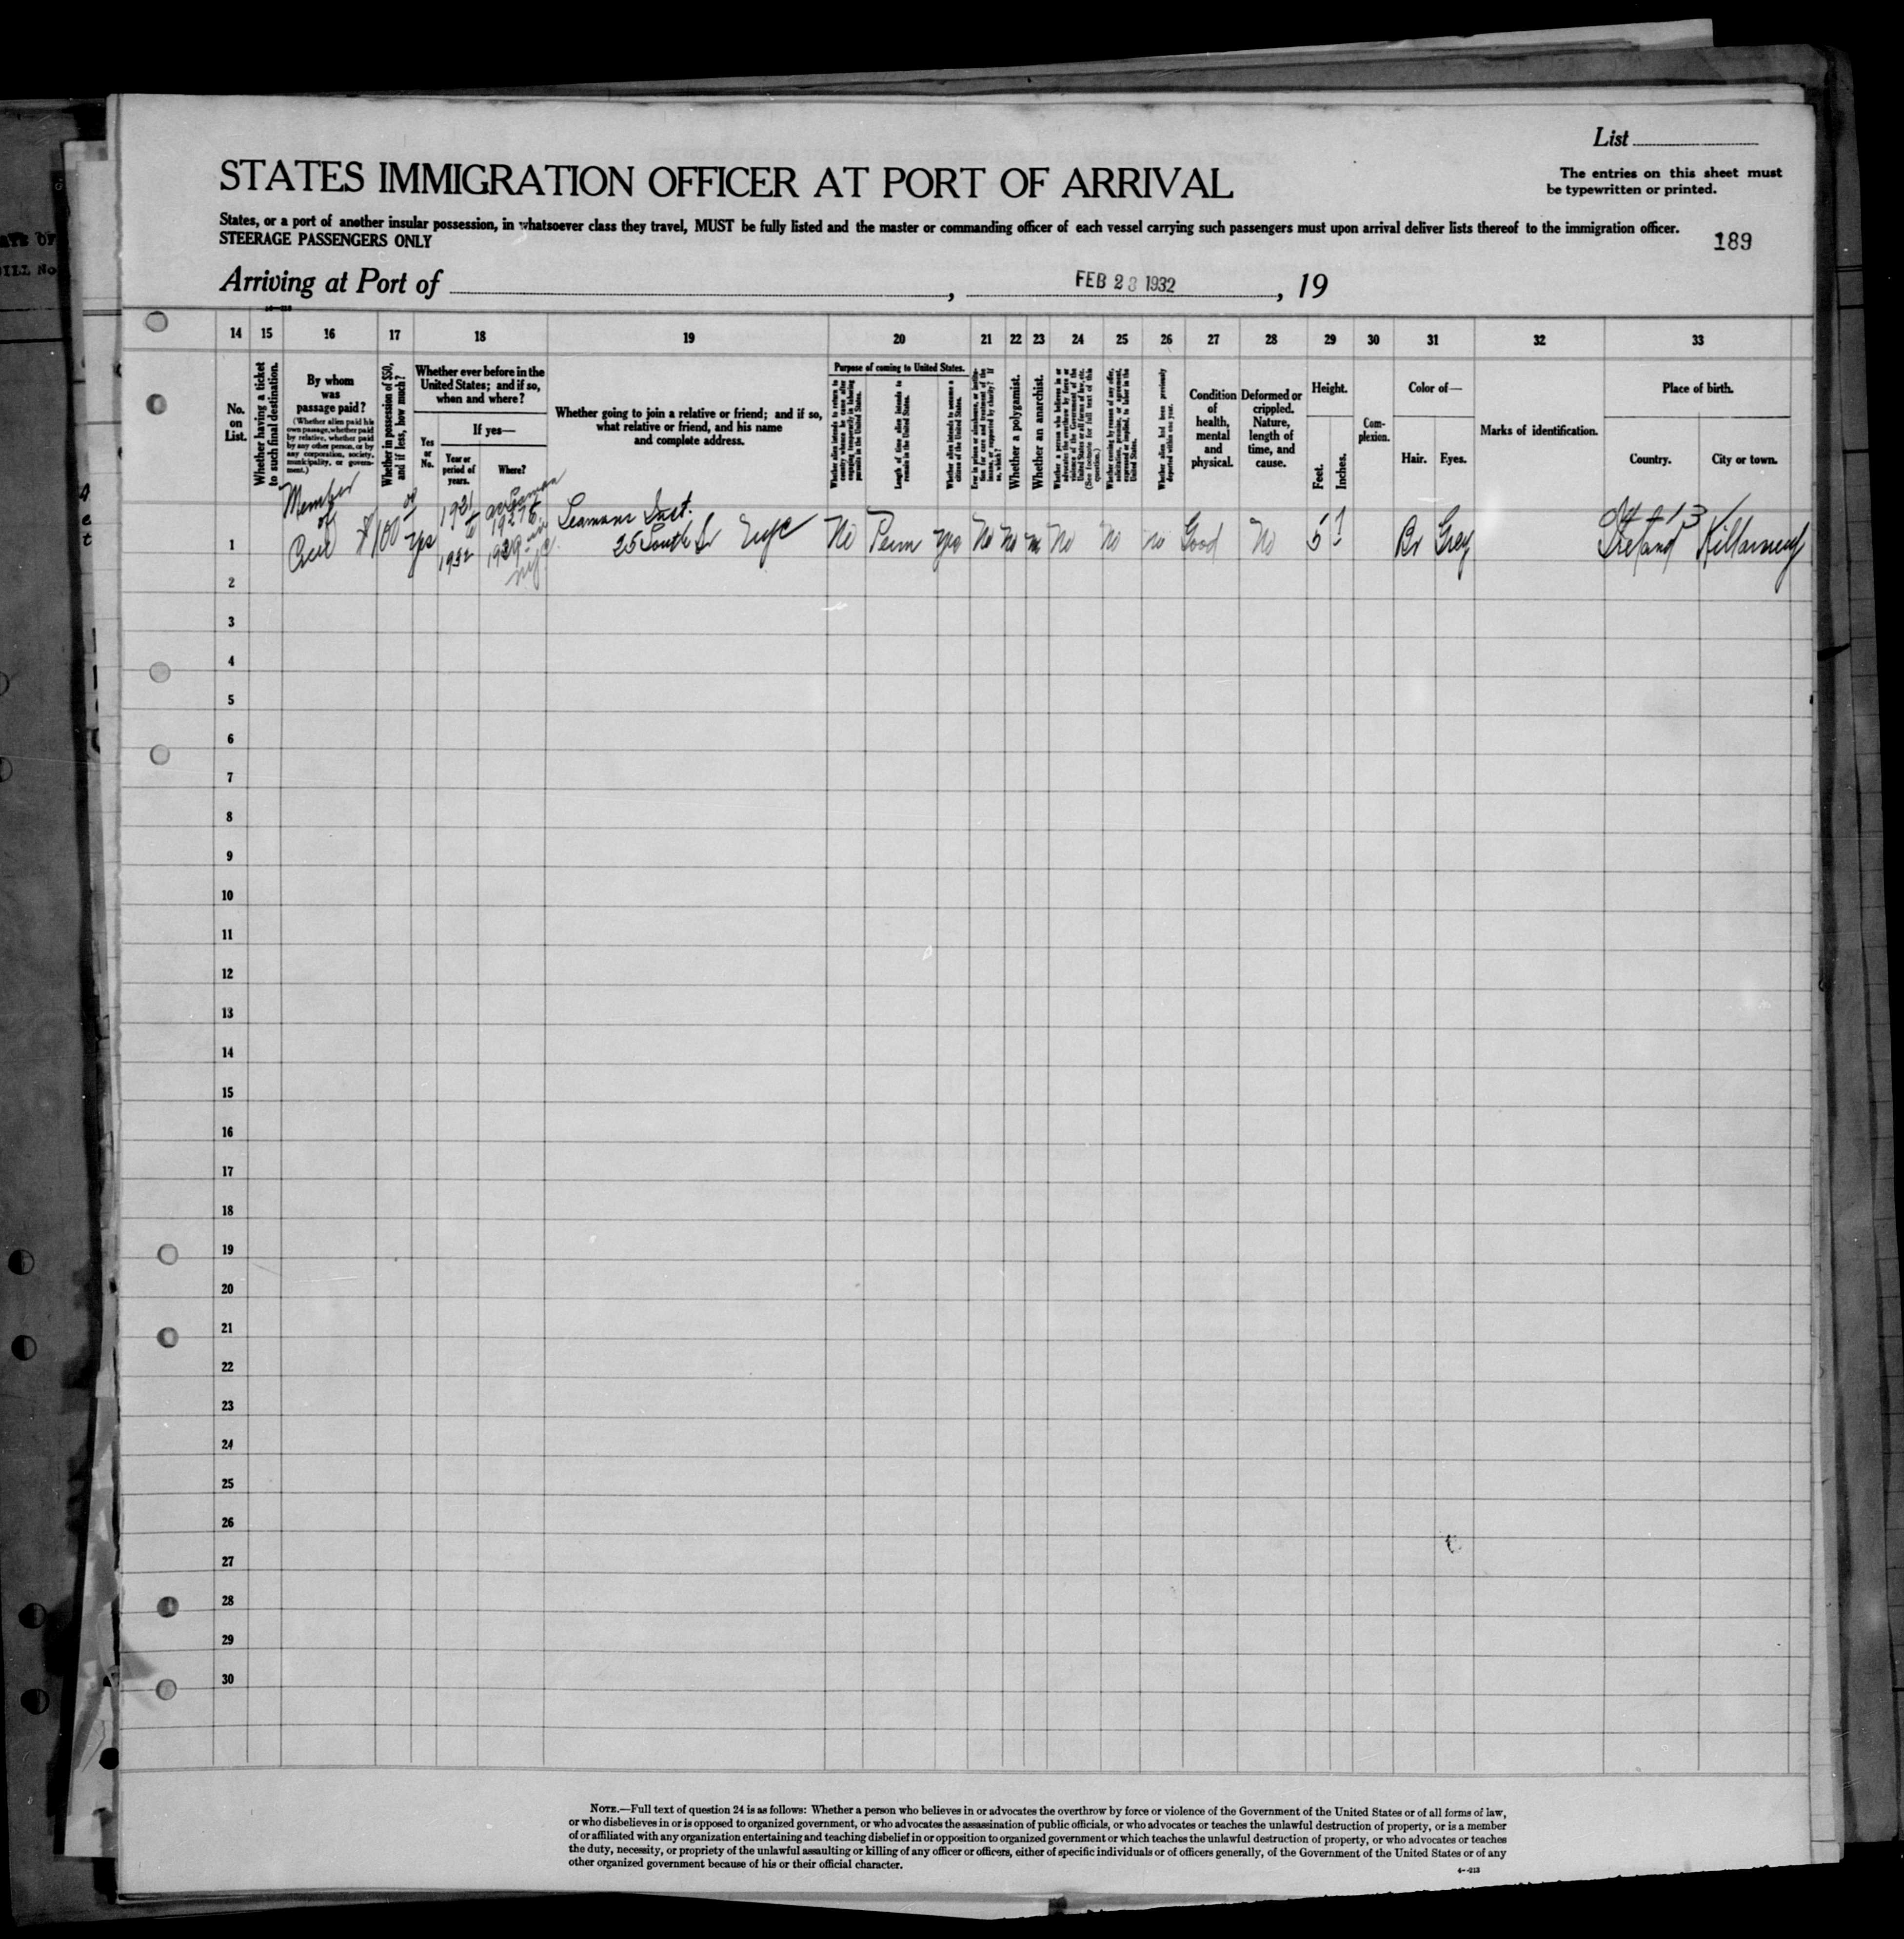 List
STATES IMMIGRATION OFFICER AT PORT OF ARRIVAL
The entries on this sheet must
be typewritten or printed.
States, or a port of another insular possession, in whatsoever class they travel, MUST be fully listed and the master or commanding officer of each vessel carrying such passengers must upon arrival deliver lists thereof to the immigration officer.
STEERAGE PASSENGERS ONLY
189
Arriving at Port of , FEB 23 1932 , 19
14 15 16 17 18 19 20 21 22 23 24 25 26 27 28 29 30 31 32 33
No. on List.
Whether having a ticket to such final destination.
By whom was passage paid?
(Whether alien paid his own passage, whether paid by relative, whether paid by any other person, or by any corporation, society, municipality, or government.)
Whether in possession of $50, and if less, how much?
Whether ever before in the United States; and if so, when and where?
Yes or No.
If yes—
Year or period of years.
Where?
Whether going to join a relative or friend; and if so, what relative or friend, and his name and complete address.
Purpose of coming to United States.
Length of time alien intends to remain in the United States.
Whether alien intends to become a citizen of the United States.
Whether a polygamist.
Whether an anarchist.
Whether alien had been previously deported within one year.
Condition of health, mental and physical.
Deformed or crippled. Nature, length of time, and cause.
Height.
Feet.
Inches.
Complexion.
Color of—
Hair.
Eyes.
Marks of identification.
Place of birth.
Country.
City or town.
Member
of
$100
Yes
1921
to
1932
Seamans Inst.
25 South St NYC
1 No Perm Yes No No No No No Good No 5 Br Grey Ireland Killarney
2
3
4
5
6
7
8
9
10
11
12
13
14
15
16
17
18
19
20
21
22
23
24
25
26
27
28
29
30
NOTE.—Full text of question 24 is as follows: Whether a person who believes in or advocates the overthrow by force or violence of the Government of the United States or of all forms of law,
or who disbelieves in or is opposed to organized government, or who advocates the assassination of public officials, or who advocates or teaches the unlawful destruction of property, or is a member
of or affiliated with any organization entertaining and teaching disbelief in or opposition to organized government or which teaches the unlawful destruction of property, or who advocates or teaches
the duty, necessity, or propriety of the unlawful assaulting or killing of any officer or officers, either of specific individuals or of officers generally, of the Government of the United States or of any
other organized government because of his or their official character.